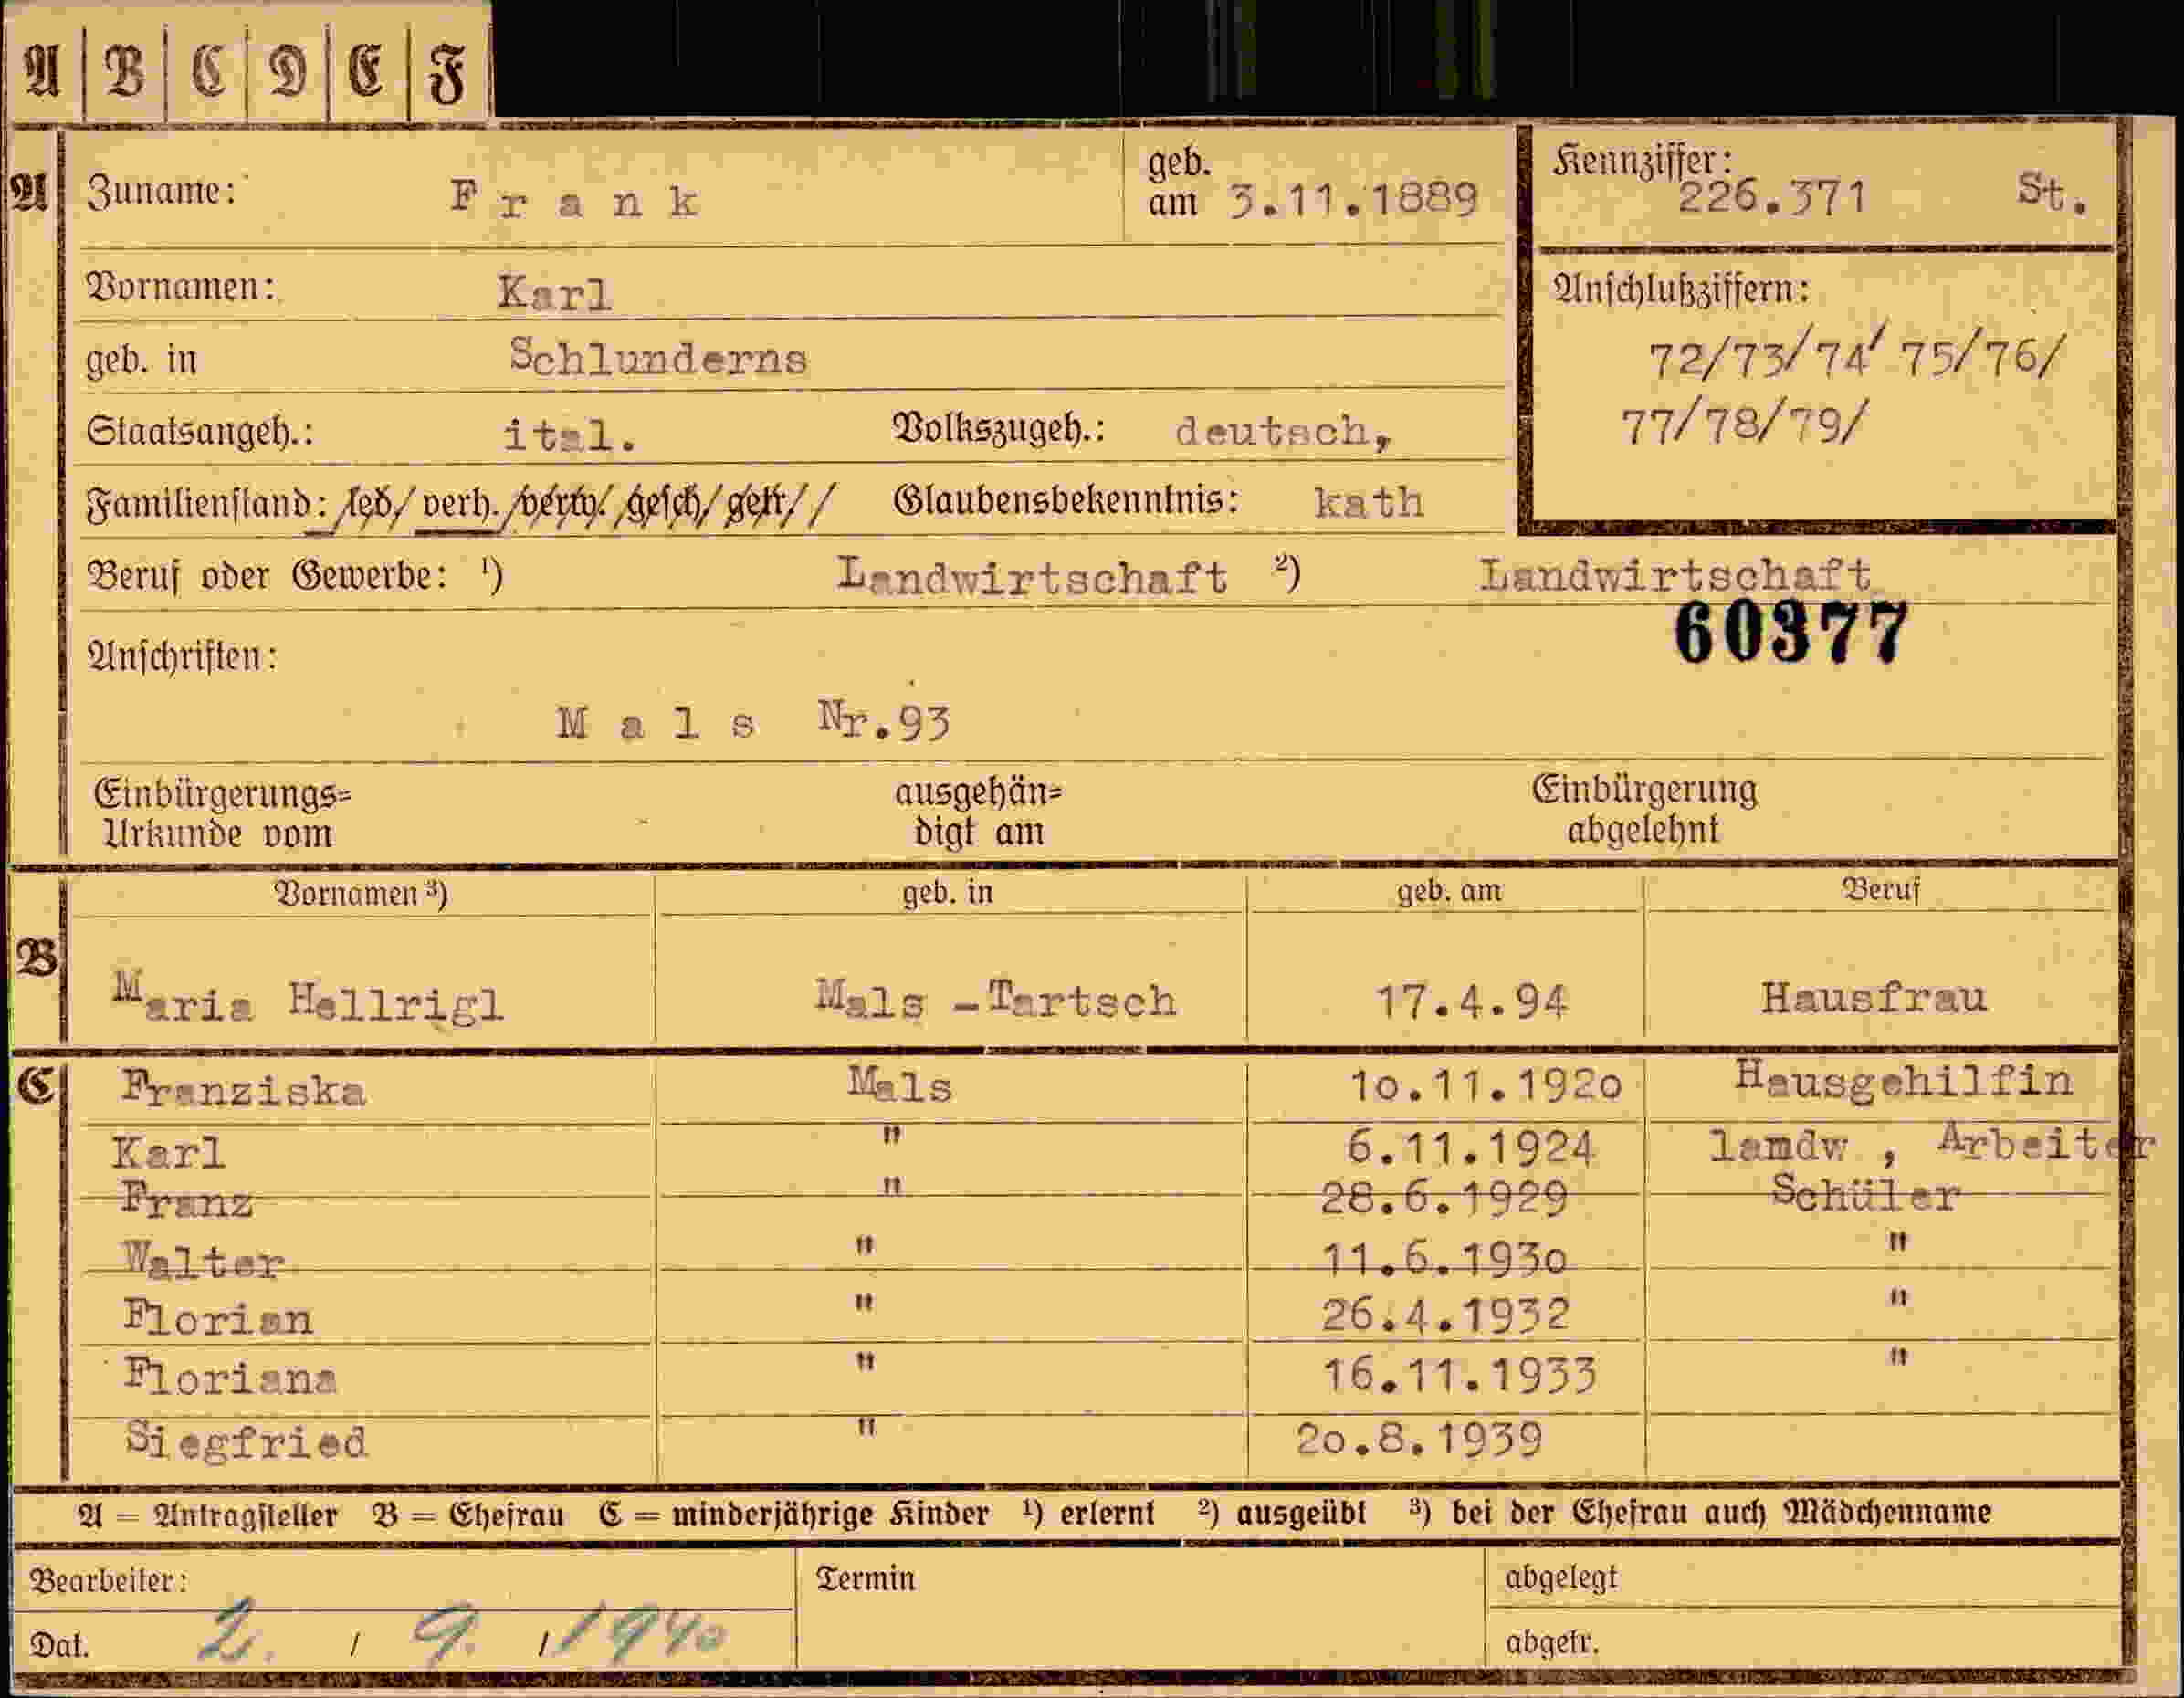 A B C D E F
A Zuname: Frank geb. am 3.11.1889 Kennziffer: 226.371 St.
Vornamen: Karl Anschlußziffern:
geb. in Schlunderns 72/73/74/75/76/
Staatsangeh.: ital. Volkszugeh.: deutsch, 77/78/79/
Familienstand: led/ verh. /verw./ gesch/ getr// Glaubensbekenntnis: kath
Beruf oder Gewerbe: ¹) Landwirtschaft ²) Landwirtschaft
60377
Anschriften:
Mals Nr.93
Einbürgerungs= ausgehän= Einbürgerung
Urkunde vom digt am abgelehnt
Vornamen ³) geb. in geb. am Beruf
B Maria Hellrigl Mals -Tartsch 17.4.94 Hausfrau
C Franziska Mals 10.11.1920 Hausgehilfin
Karl " 6.11.1924 lamdw , Arbeiter
Franz " 28.6.1929 Schüler
Walter " 11.6.1930 "
Florian " 26.4.1932 "
Floriana " 16.11.1933 "
Siegfried " 20.8.1939
A = Antragsteller B = Ehefrau C = minderjährige Kinder ¹) erlernt ²) ausgeübt ³) bei der Ehefrau auch Mädchenname
Bearbeiter: Termin abgelegt
Dat. 2. / 9. / 1940 abgetr.